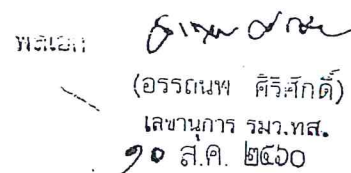 พลเอก
(อรรถนพ ศิริศักดิ์)
เลขานุการ รมว.ทส.
๑๐ ส.ค. ๒๕๖๐